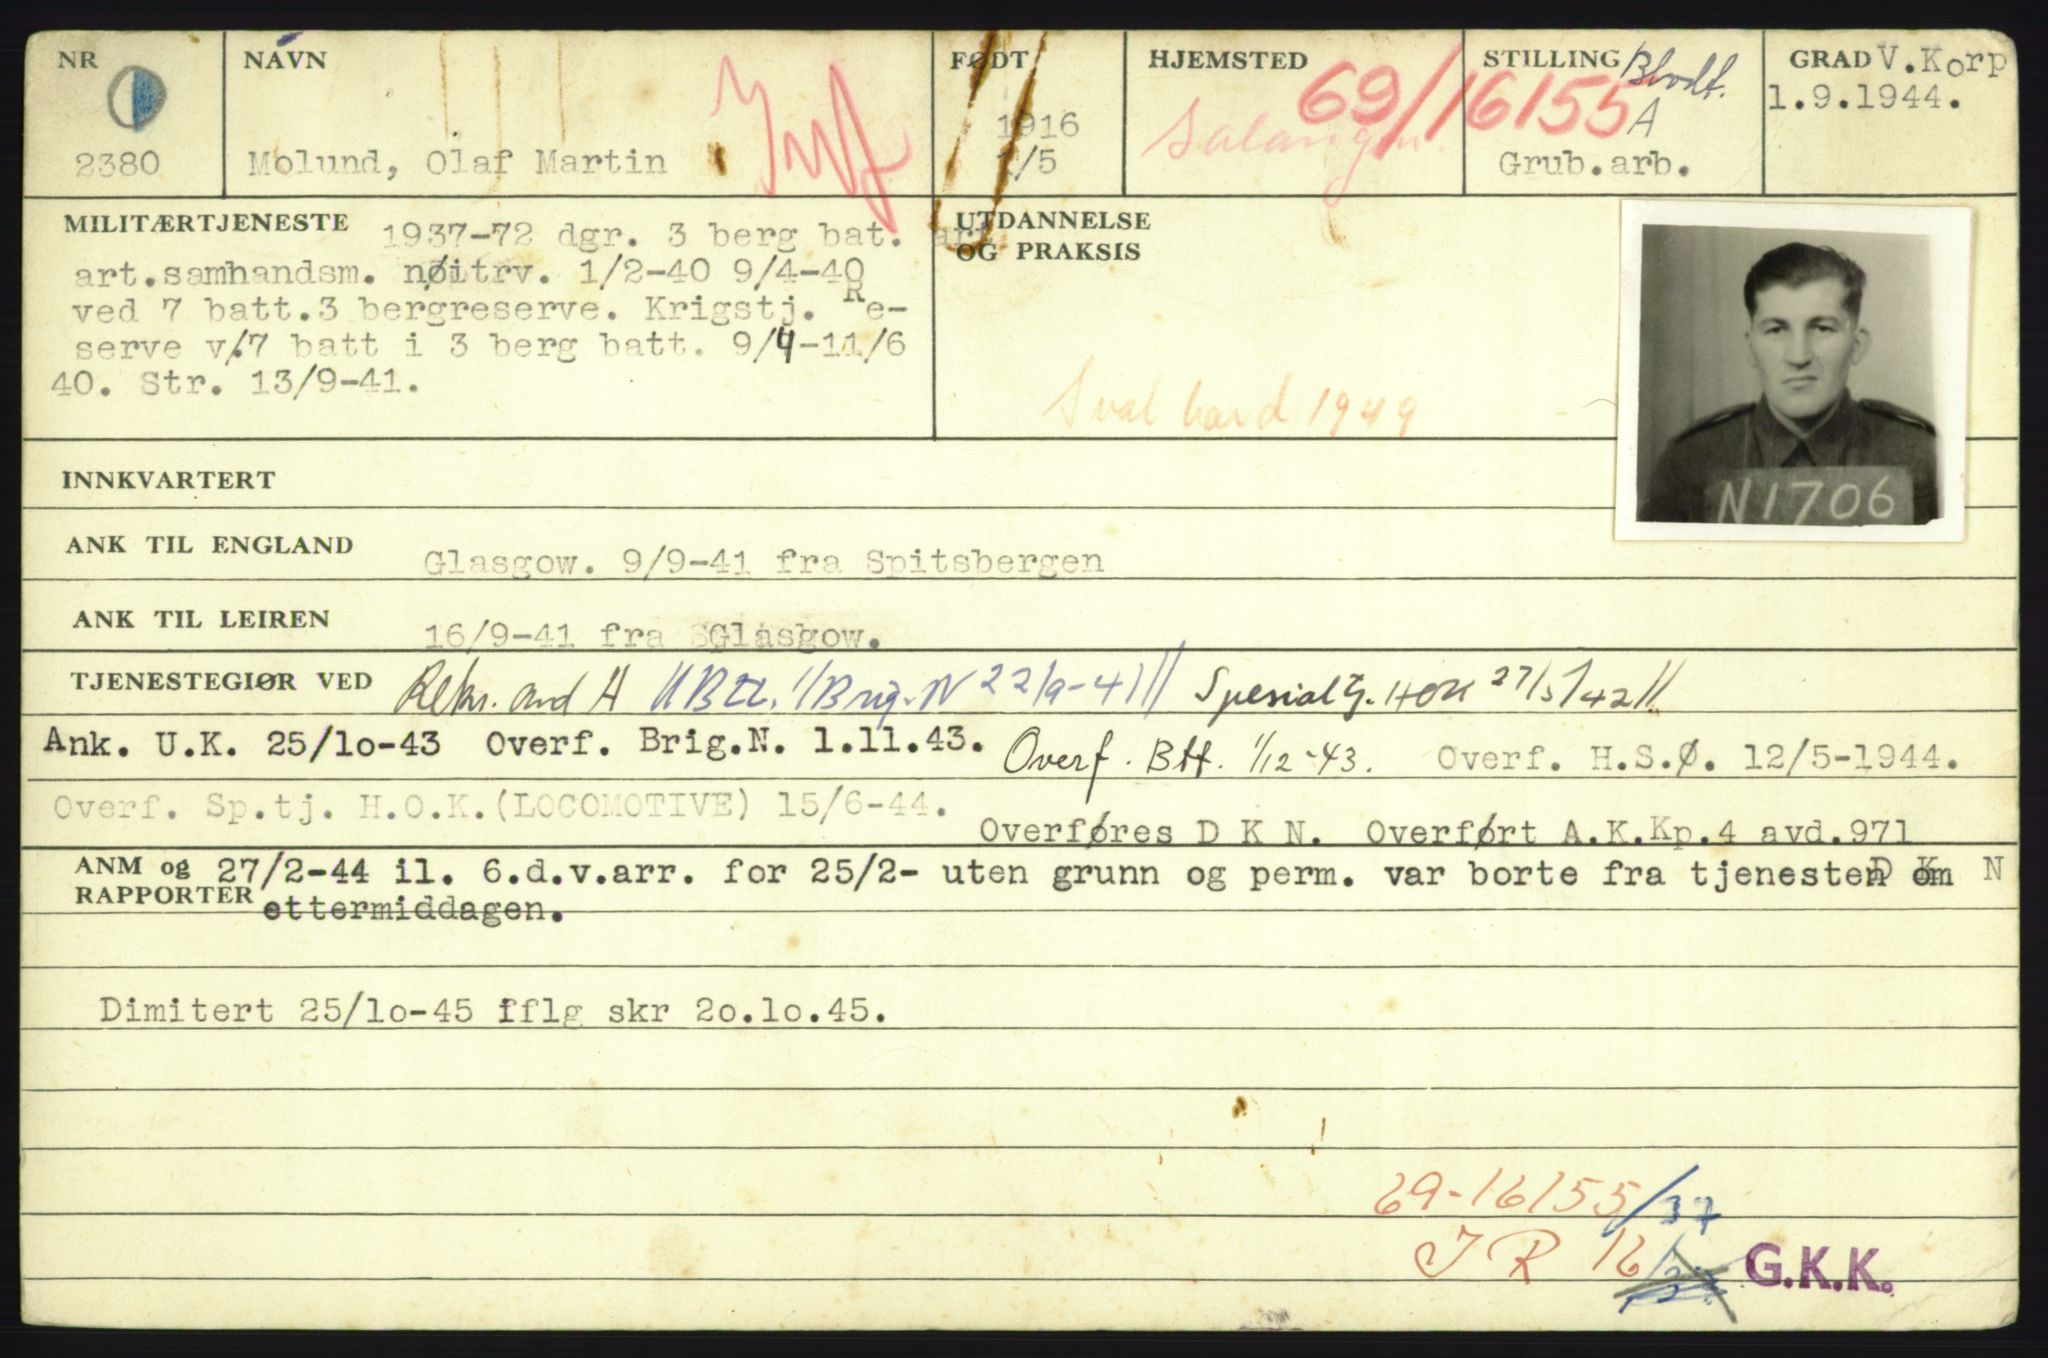 NR
NAVN
FØDT
HJEMSTED
STILLING Blodt. A
GRAD V.Korp
1.9.1944.
69/16155
Inf
2380
Molund, Olaf Martin
1916
1/5
Salangen.
Grub.arb.
MILITÆRTJENESTE 1937-72 dgr. 3 berg bat. art
art.samhandsm. nøitrv. 1/2-40 9/4-40
ved 7 batt.3 bergreserve. Krigstj. Re-
serve v/.7 batt i 3 berg batt. 9/4-11/6
40. Str. 13/9-41.
UTDANNELSE
OG PRAKSIS
Svalbard 1949
N1706
INNKVARTERT
ANK TIL ENGLAND Glasgow. 9/9-41 fra Spitsbergen
ANK TIL LEIREN 16/9-41 fra SGlasgow.
TJENESTEGIØR VED Rekr. avd A II Btl. 1/Brig. N 22/9-41// Spesialtj. HOK 27/5/42//.
Ank. U.K. 25/lo-43 Overf. Brig.N. 1.11.43. Overf. Btt. 1/12-43. Overf. H.S.Ø. 12/5-1944.
Overf. Sp.tj. H.O.K.(LOCOMOTIVE) 15/6-44. Overføres D K N. Overført A.K.Kp.4 avd.971
D K N
ANM og 27/2-44 il. 6.d.v.arr. for 25/2- uten grunn og perm. var borte fra tjenesten om
RAPPORTER ettermiddagen.
Dimitert 25/lo-45 iflg skr 2o.lo.45.
69-16155/37
I R 16
G.K.K.